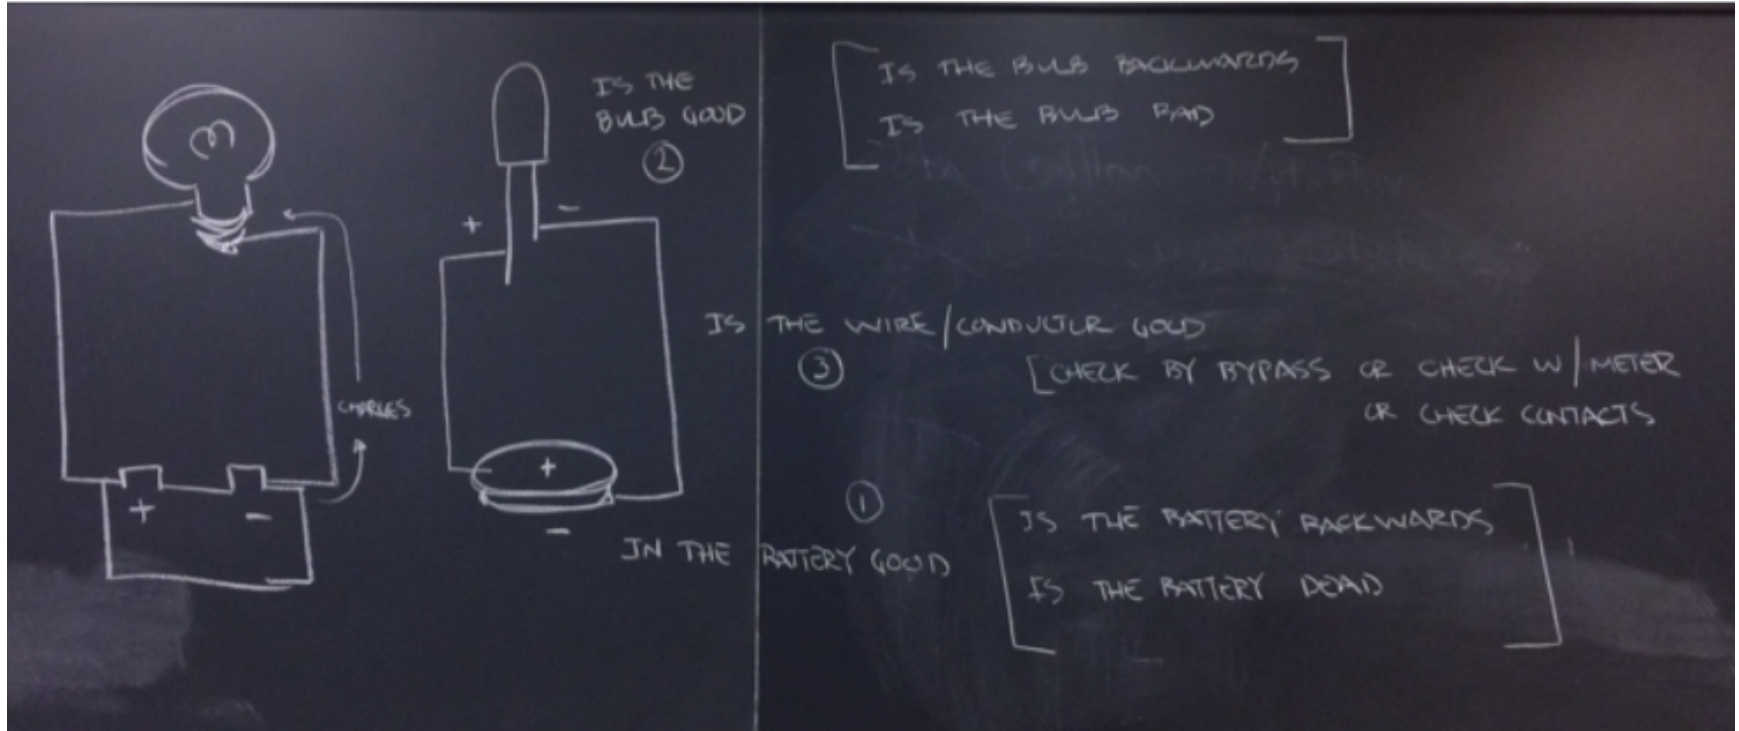 IS THE
BULB GOOD
2
IS THE BULB BACKWARDS
IS THE BULB BAD
+ -
IS THE WIRE/CONDUCTOR GOOD
3
CHECK BY BYPASS OR CHECK W/ METER
OR CHECK CONTACTS
CHARGES
+ -
+
-
1
IN THE BATTERY GOOD
IS THE BATTERY BACKWARDS
IS THE BATTERY DEAD